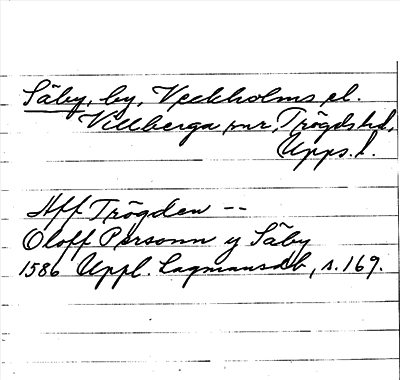 Säby, by, Veckholms el.
Villberga snr, Trögds hd,
Upps. l.
Aff Trögden --
Oloff Personn y Säby
1586 Uppl. Lagmansdb, s. 169.